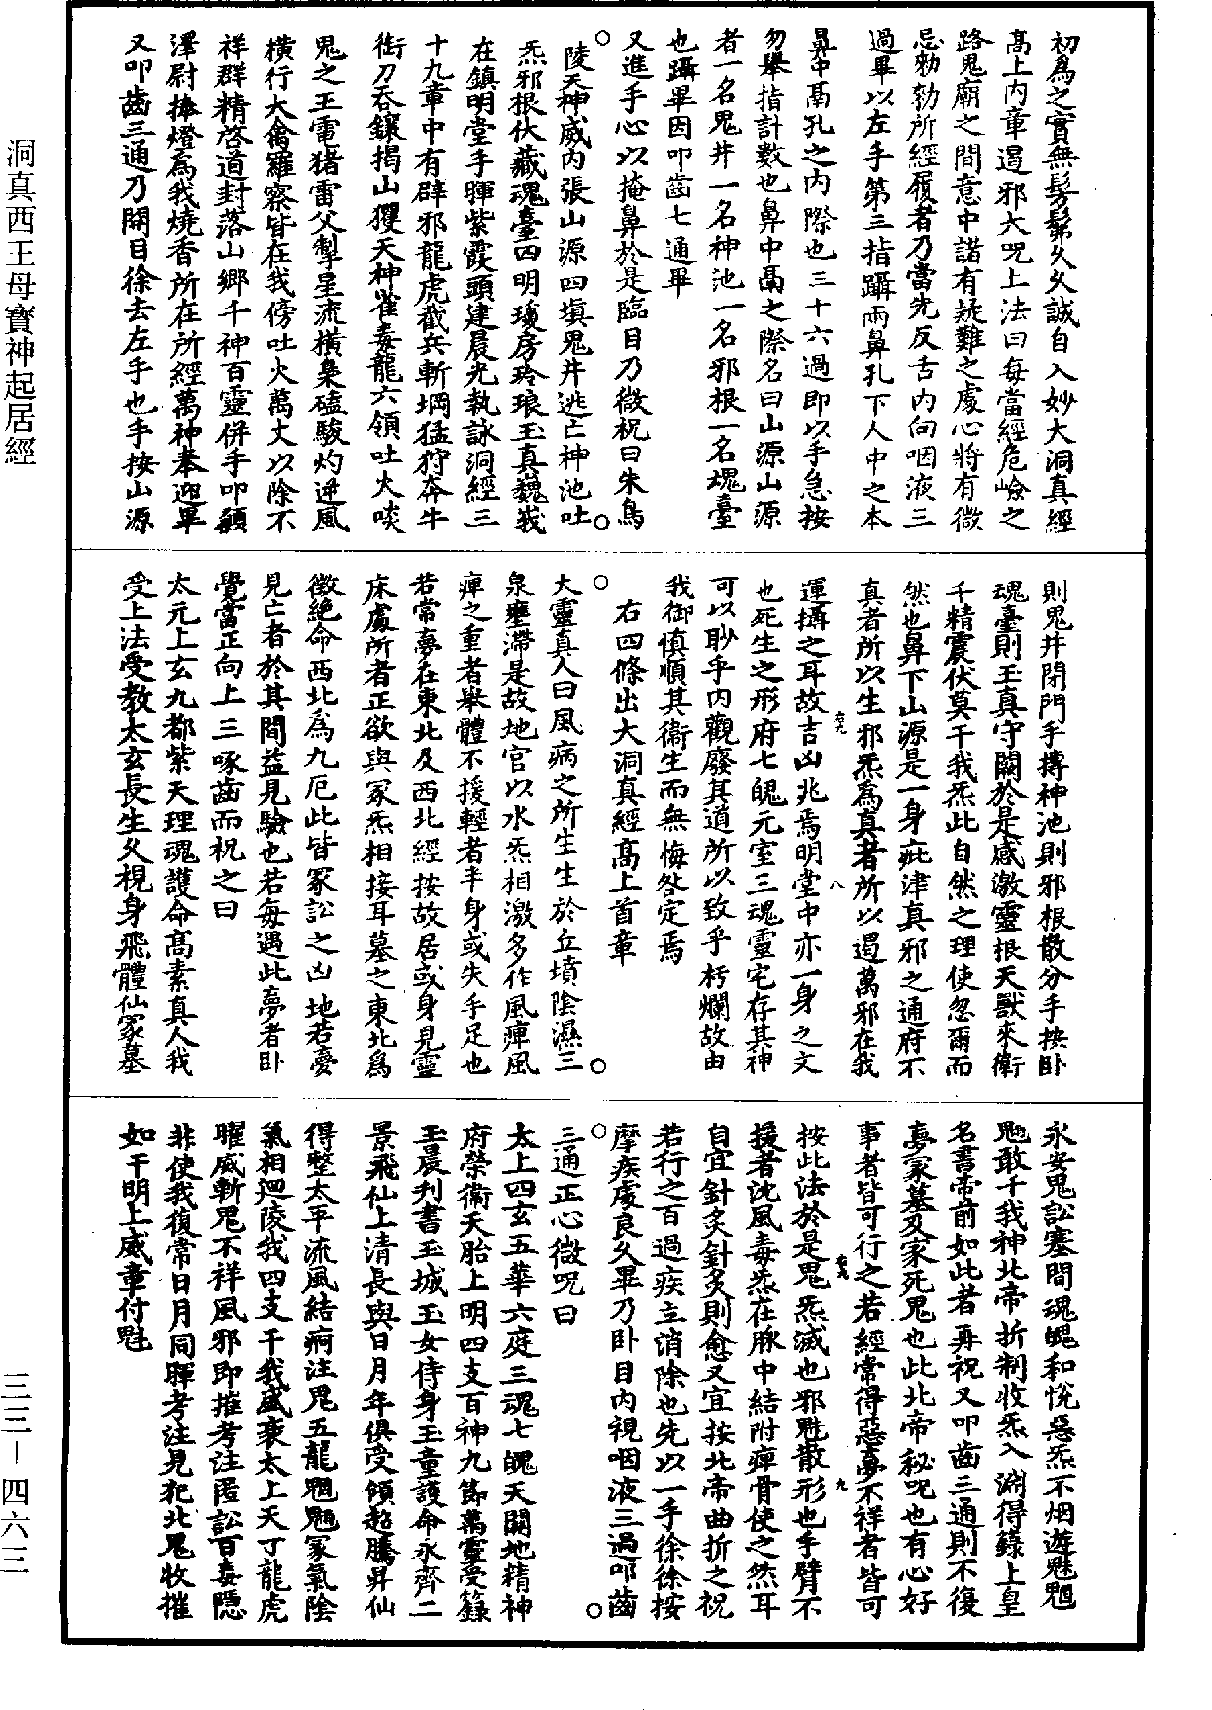 洞真西王母寶神起居經
初為之實無髣髴久久誠自入妙大洞真經
高上內章遏邪大咒上法曰每當經危嶮之
路鬼廟之間意中諸有疑難之處心將有微
忌勑勒所經履者乃當先反舌內向咽液三
過畢以左手第三指躡兩鼻孔下人中之本
鼻中鬲孔之內際也三十六過即以手急按
勿舉指計數也鼻中鬲之際名曰山源山源
者一名鬼井一名神池一名邪根一名魂臺
也躡畢因叩齒七通畢
又進手心以掩鼻於是臨目乃微祝曰朱鳥
陵天神威內張山源四填鬼井逃亡神池吐
炁邪根伏藏魂臺四明瓊房玲琅玉真巍峩
在鎮明堂手暉紫霞頭建晨光執詠洞經三
十九章中有辟邪龍虎截兵斬堈猛狩奔牛
銜刀吞鑲揭山玃天神雀毒龍六領吐火啖
鬼之王電猪雷父掣星流橫梟磕駮灼逆風
橫行大禽羅察皆在我傍吐火萬丈以除不
祥群精啓道封落山鄉千神百靈併手叩額
澤尉捧燈為我燒香所在所經萬神奉迎畢
又叩齒三通乃開目徐去左手也手按山源
則鬼井閉門手搏神池則邪根散分手按卧
魂臺則玉真守關於是感激靈根天獸來衛
千精震伏莫干我炁此自然之理使忽爾而
然也鼻下山源是一身疵津真邪之通府不
真者所以生邪炁為真者所以遏萬邪在我
運攝之耳故吉凶兆焉明堂中亦一身之文
也死生之形府七魄元室三魂靈宅存其神
可以眇乎內觀廢其道所以致乎朽爛故由
我御慎順其衛生而無悔咎定焉
右四條出大洞真經高上首章
大靈真人曰風病之所生生於丘墳陰濕三
泉壅滯是故地官以水炁相激多作風痺風
痺之重者舉體不援輕者半身或失手足也
若常夢在東北及西北經按故居或身見靈
床處所者正欲與冢炁相接耳墓之東北為
徵絕命西北為九厄此皆冢訟之凶地若夢
見亡者於其間益見驗也若每遇此夢者卧
覺當正向上三啄齒而祝之曰
太元上玄九都紫天理魂護命高素真人我
受上法受教太玄長生久視身飛體仙冢墓
永安鬼訟塞間魂魄和悅惡炁不烟遊魅魍
魎敢干我神北帝折制收炁入淵得籙上皇
名書帝前如此者再祝又叩齒三通則不復
夢冢墓及家死鬼也此北帝秘咒也有心好
事者皆可行之若經常得惡夢不祥者皆可
按此法於是鬼炁滅也邪魅散形也手臂不
援者沈風毒炁在脉中結附痺骨使之然耳
自宜針灸針灸則愈又宜按北帝曲折之祝
若行之百過疾立消除也先以一手徐徐按
摩疾處良久畢乃卧目內視咽液三過叩齒
三通正心微咒曰
太上四玄五華六庭三魂七魄天關地精神
府榮衛天胎上明四支百神九節萬靈受籙
玉晨刋書玉城玉女侍身玉童護命永齊二
景飛仙上清長與日月年俱受傾超騰昇仙
得整太平流風結痾注鬼五龍魍魎冢氣陰
氣相迴陵我四支干我盛衰太上天丁龍虎
曜威斬鬼不祥風邪即摧考注匿訟百毒隱
非使我復常日月同暉考注見犯北鬼收摧
如干明上威章付魁
三三－四六三